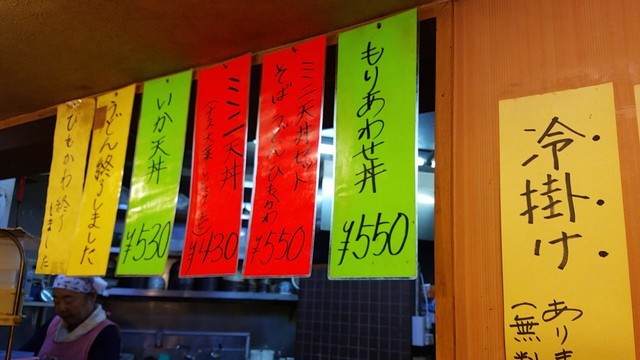 冷掛け
ありま
(無料
もりあわせ丼
¥550
ミニ天丼セット
そば うどん ひもかわ
¥550
ミニ天丼
¥430
いか天丼
¥530
うどん終りました
ひもかわ終り
ました